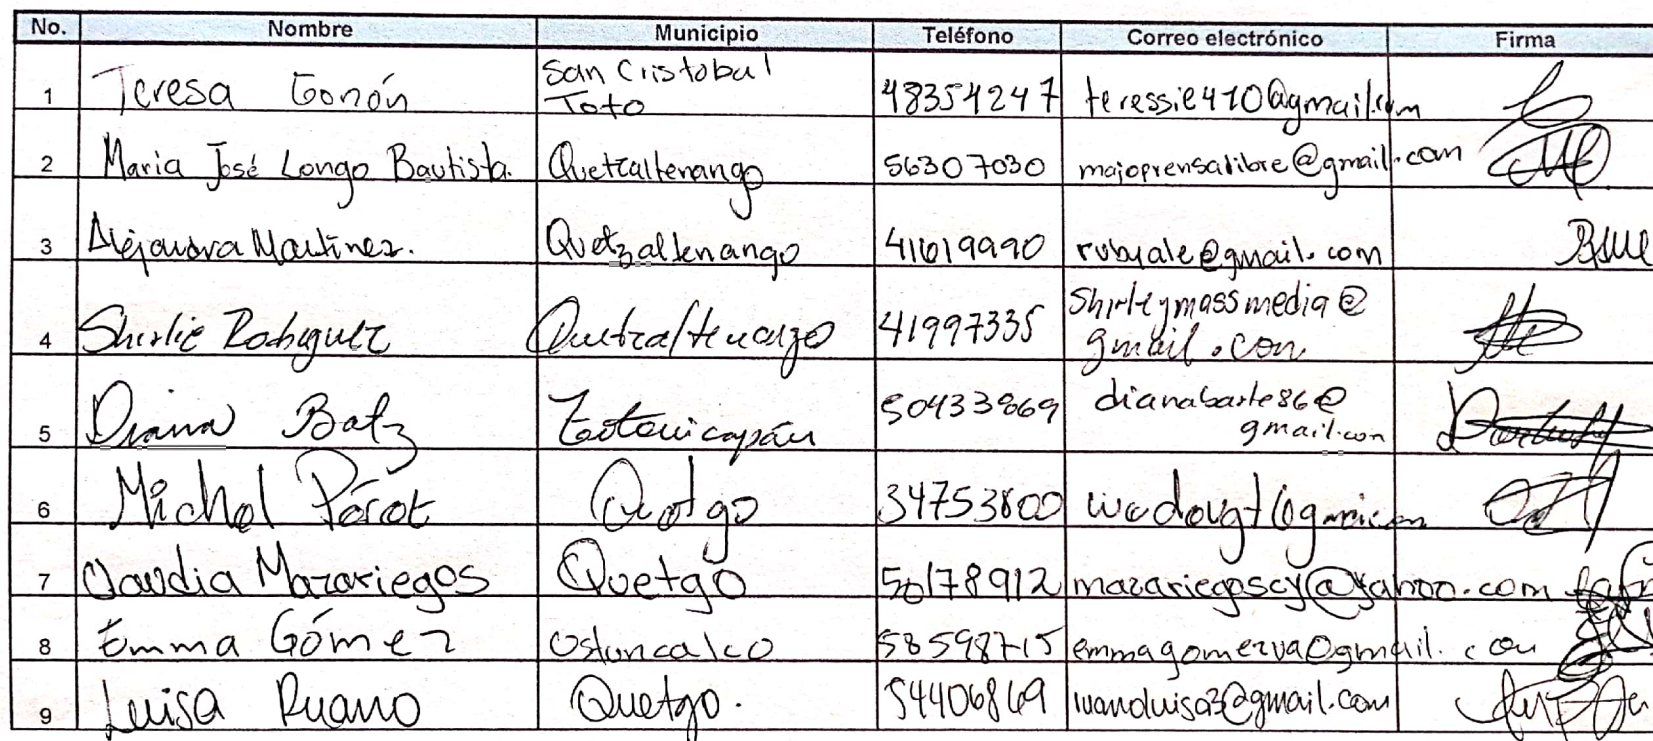 No. Nombre Municipio Teléfono Correo electrónico Firma
1 Teresa Gonón San Cristobal Toto 48354247 teressie410@gmail.com
2 Maria José Longo Bautista. Quetzaltenango 56307030 majoprensalibre@gmail.com
3 Alejandra Martinez. Quetzaltenango 41619990 rubyale@gmail.com
4 Shirlie Rodriguez Quetzaltenango 41997335 Shirleymassmedia@
gmail.com
5 Diana Batz Totonicapán 50433869 dianabarte86@
gmail.com
6 Michel Pérot Quetgo 34753800
7 Claudia Mazariegos Quetgo 50178912 mazariegoscy@yahoo.com
8 Emma Gómez Ostuncalco 58598715 emmagomezva@gmail.com
9 Luisa Ruano Quetgo. 54406869